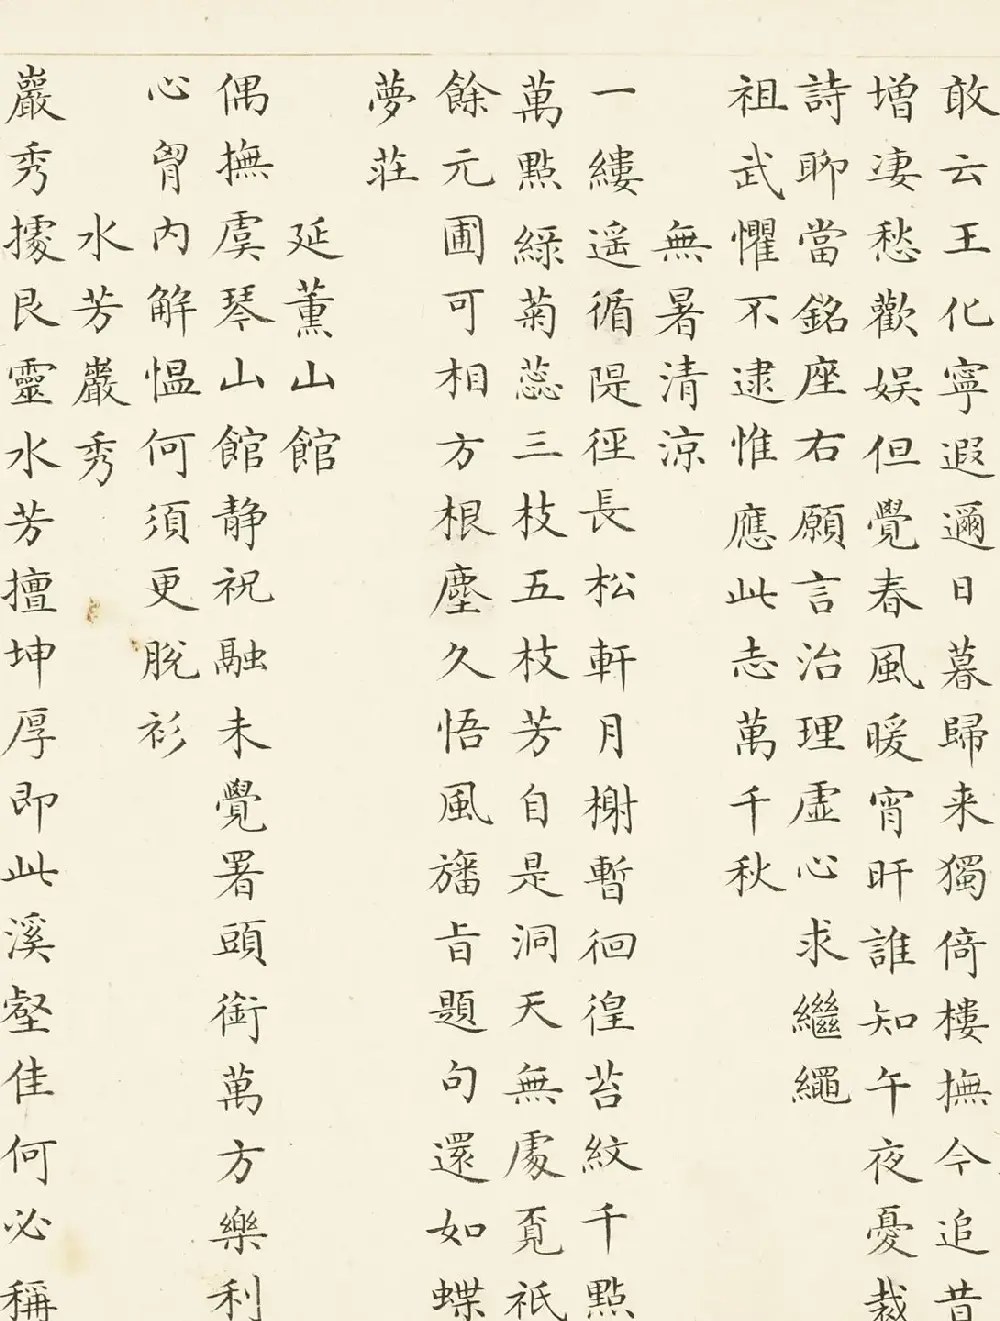 敢云王化寧遐邇日暮歸来獨倚樓撫今追昔
增凄愁歡娱但覺春風暖宵旰誰知午夜憂裁
詩聊當銘座右願言治理虚心求繼繩
祖武懼不逮惟應此志萬千秋
無暑清涼
一縷遥循隄徑長松軒月榭暫徊徨苔紋千點
萬點綠菊蕊三枝五枝芳自是洞天無處覓祇
餘元圃可相方根塵久悟風旛旨題句還如蝶
夢莊
延薰山館
偶撫虞琴山館静祝融未覺署頭銜萬方樂利
心胷内解愠何須更脱衫
水芳巖秀
巖秀據艮靈水芳擅坤厚即此溪壑佳何必稱